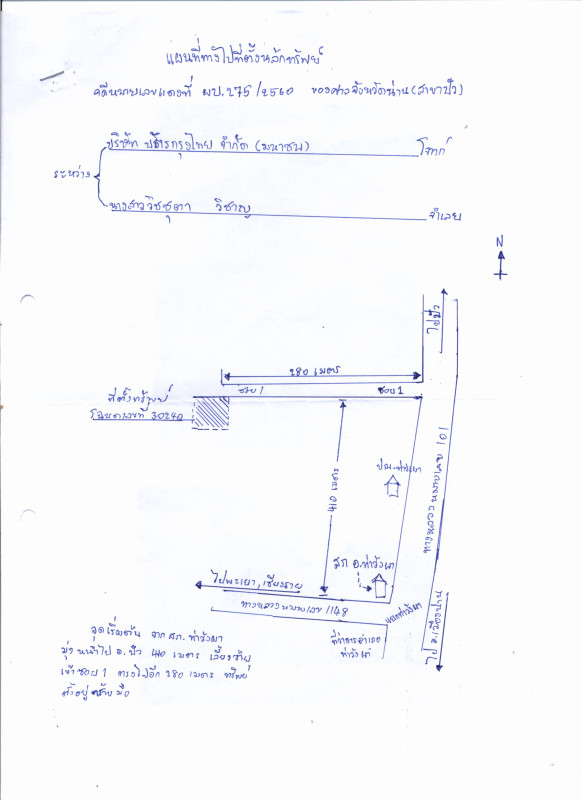 แผนที่ทางไปที่ตั้งหลักทรัพย์
คดีหมายเลขแดงที่ ผบ.275/2560 ของศาลจังหวัดน่าน(สาขาปัว)
บริษัท บัตรกรุงไทย จำกัด (มหาชน) โจทก์
ระหว่าง
นางสาววิชชุตา วิชาญ จำเลย
N
ไปปัว
280 เมตร
ซอย 1 ซอย 1
ที่ตั้งทรัพย์
โฉนดเลขที่ 30240
ทางหลวงหมายเลข 101
ปณ.ท่าวังผา
410 เมตร
สภ อ.ท่าวังผา
ไปพะเยา,เชียงราย
ทางหลวงหมายเลข 1148
แยกท่าวังผา
ที่ว่าการอำเภอ
ท่าวังผา
ไป อ.เมืองน่าน
จุดเริ่มต้น จาก สภ.ท่าวังผา
มุ่งหน้าไป อ.ปัว 410 เมตร เลี้ยวซ้าย
เข้าซอย 1 ตรงไปอีก 280 เมตร ทรัพย์
ตั้งอยู่ซ้ายมือ